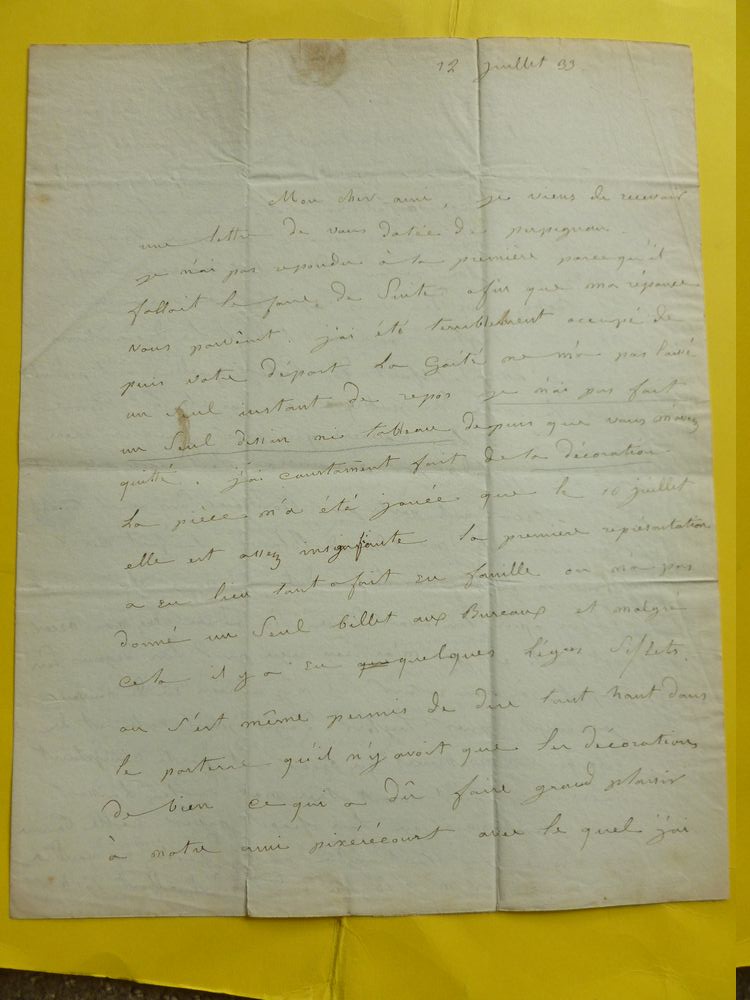 12 juillet 33
Mon cher ami, je viens de recevoir
une lettre de vous datée de perpignan.
je n'ai pas repondu à la première parcequ'il
falloit le faire de Suite afin que ma réponse
vous parvînt. j'ai été terriblement occupé de
puis votre départ La Gaité ne m'a pas laissé
un Seul instant de repos je n'ai pas fait
un Seul dessin ni tableau depuis que vous m'avez
quitté. j'ai constament fait de la décoration
La pièce n'a été jouée que le 10 juillet
elle est assez insignifiante la première représentation
a eu lieu tout afait en famille on n'a pas
donné un Seul billet aux Bureaux et malgré
cela il y a eu que quelques légers Siflets.
on S'est même permis de dire tout haut dans
le parterre qu'il n'y avoit que les décorations
de bien ce qui a dû faire grand plaisir
à notre ami pixérécourt avec le quel j'ai